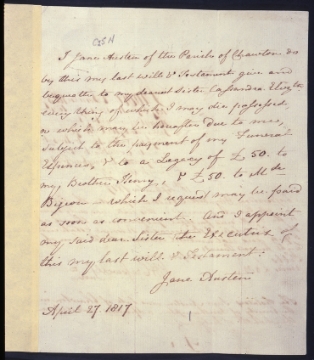 I Jane Austen of the Parish of Chawton do
by this my last will & Testament give and
bequeath to my dearest Sister Cassandra Elizth
every thing of which I may die possessed,
or which may be hereafter due to me,
subject to the payment of my Funeral
Expences, & to a Legacy of £50. to
my Brother Henry, & £50. to Mde
Bigeon - which I request may be paid
as soon as convenient. And I appoint
my said dear Sister the Executrix of
this my last will & Testament.
Jane Austen
April 27 1817